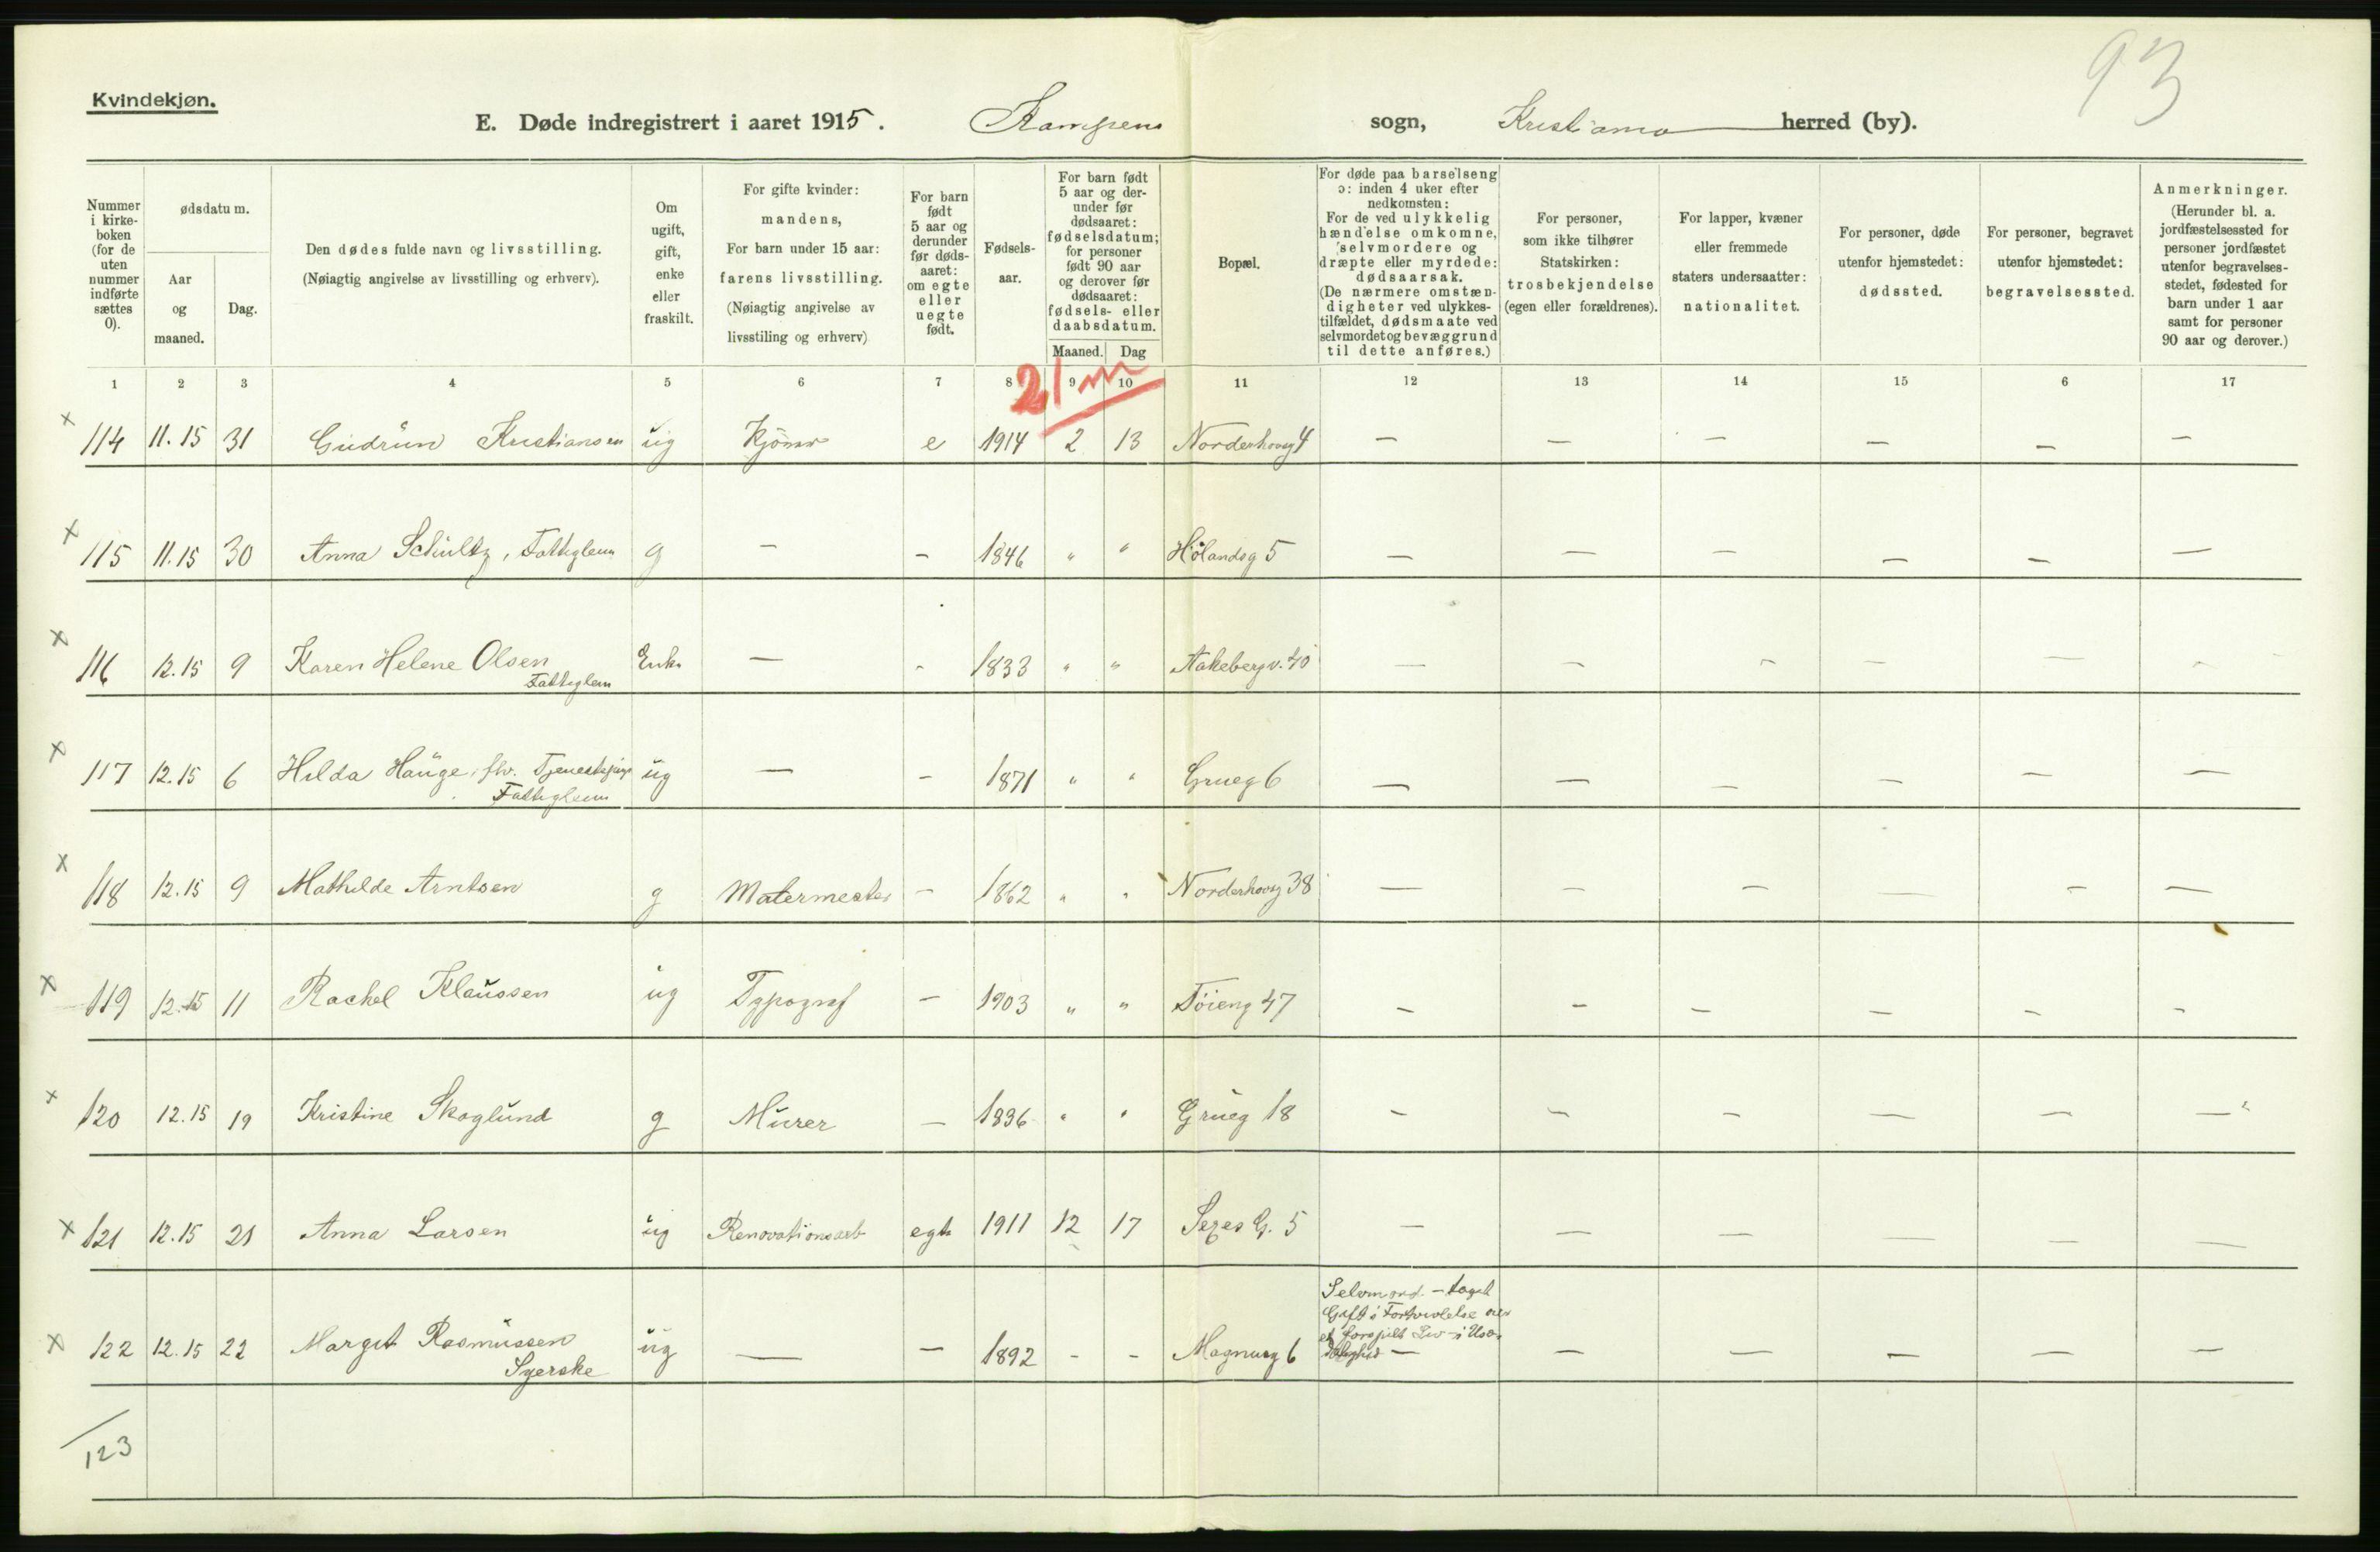 93
Kvindekjøn.
E. Døde indregistrert i aaret 1915. Kampens sogn, Kristiania herred (by).
Nummer i kirkeboken (for de uten nummer indførte sættes 0).
ødsdatum.
Aar og maaned.
Dag.
Den dødes fulde navn og livsstilling. (Nøiagtig angivelse av livsstilling og erhverv).
Om ugift, gift, enke eller fraskilt.
For gifte kvinder: mandens, For barn under 15 aar: farens livsstilling. (Nøiagtig angivelse av livsstiling og erhverv)
For barn født 5 aar og derunder før dødsaaret: om egte eller uegte født.
Fødselsaar.
For barn født 5 aar og derunder før dødsaaret: fødselsdatum; for personer født 90 aar og derover før dødsaaret: fødsels- eller daabsdatum.
Maaned. Dag
Bopæl.
For døde paa barselseng ɔ: inden 4 uker efter nedkomsten: For de ved ulykkelig hændelse omkomne, selvmordere og dræpte eller myrdede: dødsaarsak. (De nærmere omstændigheter ved ulykkestilfældet, dødsmaate ved selvmordet og bevæggrund til dette anføres.)
For personer, som ikke tilhører Statskirken: trosbekjendelse (egen eller forældrenes).
For lapper, kvæner eller fremmede staters undersaatter: nationalitet.
For personer, døde utenfor hjemstedet: dødssted.
For personer, begravet utenfor hjemstedet: begravelsessted.
Anmerkninger. (Herunder bl. a. jordfæstelsessted for personer jordfæstet utenfor begravelsesstedet, fødested for barn under 1 aar samt for personer 90 aar og derover.)
1 2 3 4 5 6 7 8 9 10 11 12 13 14 15 6 17
21 m
× 114 11.15 31 Gudrun Kristiansen ug e 1914 2 13 Norderhovg 4 — — — — — —
× 115 11.15 30 Anna Schultz, Fattiglem g — — 1846 " " Hölandsg 5 — — — — — —
× 116 12.15 9 Karen Helene Olsen Enke — - 1833 " " Aakebergv. 40 — — — — — -
Fattiglem
× 117 12.15 6 Hilda Hauge, fhv. Tjenestepige ug — — 1871 " " Grueg 6 — — — — — —
Fattiglem
× 118 12.15 9 Mathilde Arntsen g Malermester — 1862 " " Norderhovg 38 — — — — — —
× 119 12.15 11 Rachel Klaussen ug Typograf — 1903 " " Töieng 47 — — — — — -
× 120 12.15 19 Kristine Skoglund g Murer — 1836 " " Grueg 18 — — — — — —
× 121 12.15 21 Anna Larsen ug Renovationsarb egte 1911 12 17 G. 5 — — — — — —
× 122 12.15 22 Margit Rasmussen ug — — 1892 - - Magnusg 6 Selvmord. — taget
Gift i Fortvivlelse over
et forspilt Liv — i Usæ-
delighed — — — — — —
Syerske
123